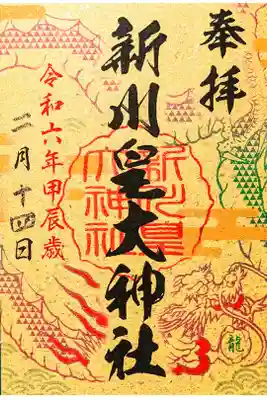 奉拝
新川皇大神社
令和六年甲辰歳
二月十四日
新川皇
大神社
龍